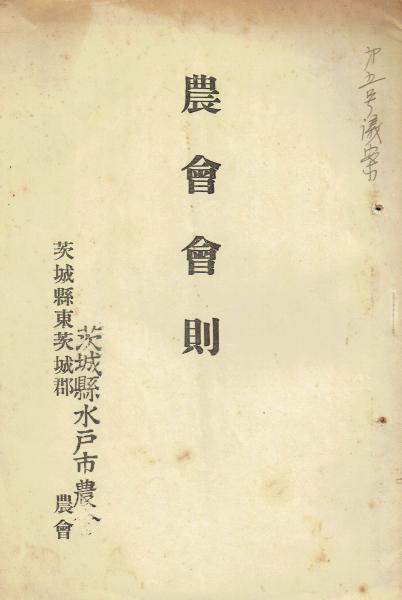 第五号議案
農會會則
茨城縣水戸市農會
茨城縣東茨城郡 農會